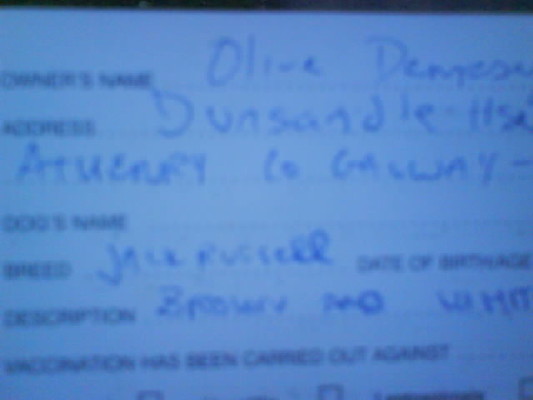 OWNER'S NAME Olive
ADDRESS Dunsandle Hse
ATHENRY Co GALWAY -
DOG'S NAME
BREED JACK RUSSELL DATE OF BIRTH/AGE
DESCRIPTION BROWN AND WHIT
VACCINATION HAS BEEN CARRIED OUT AGAINST